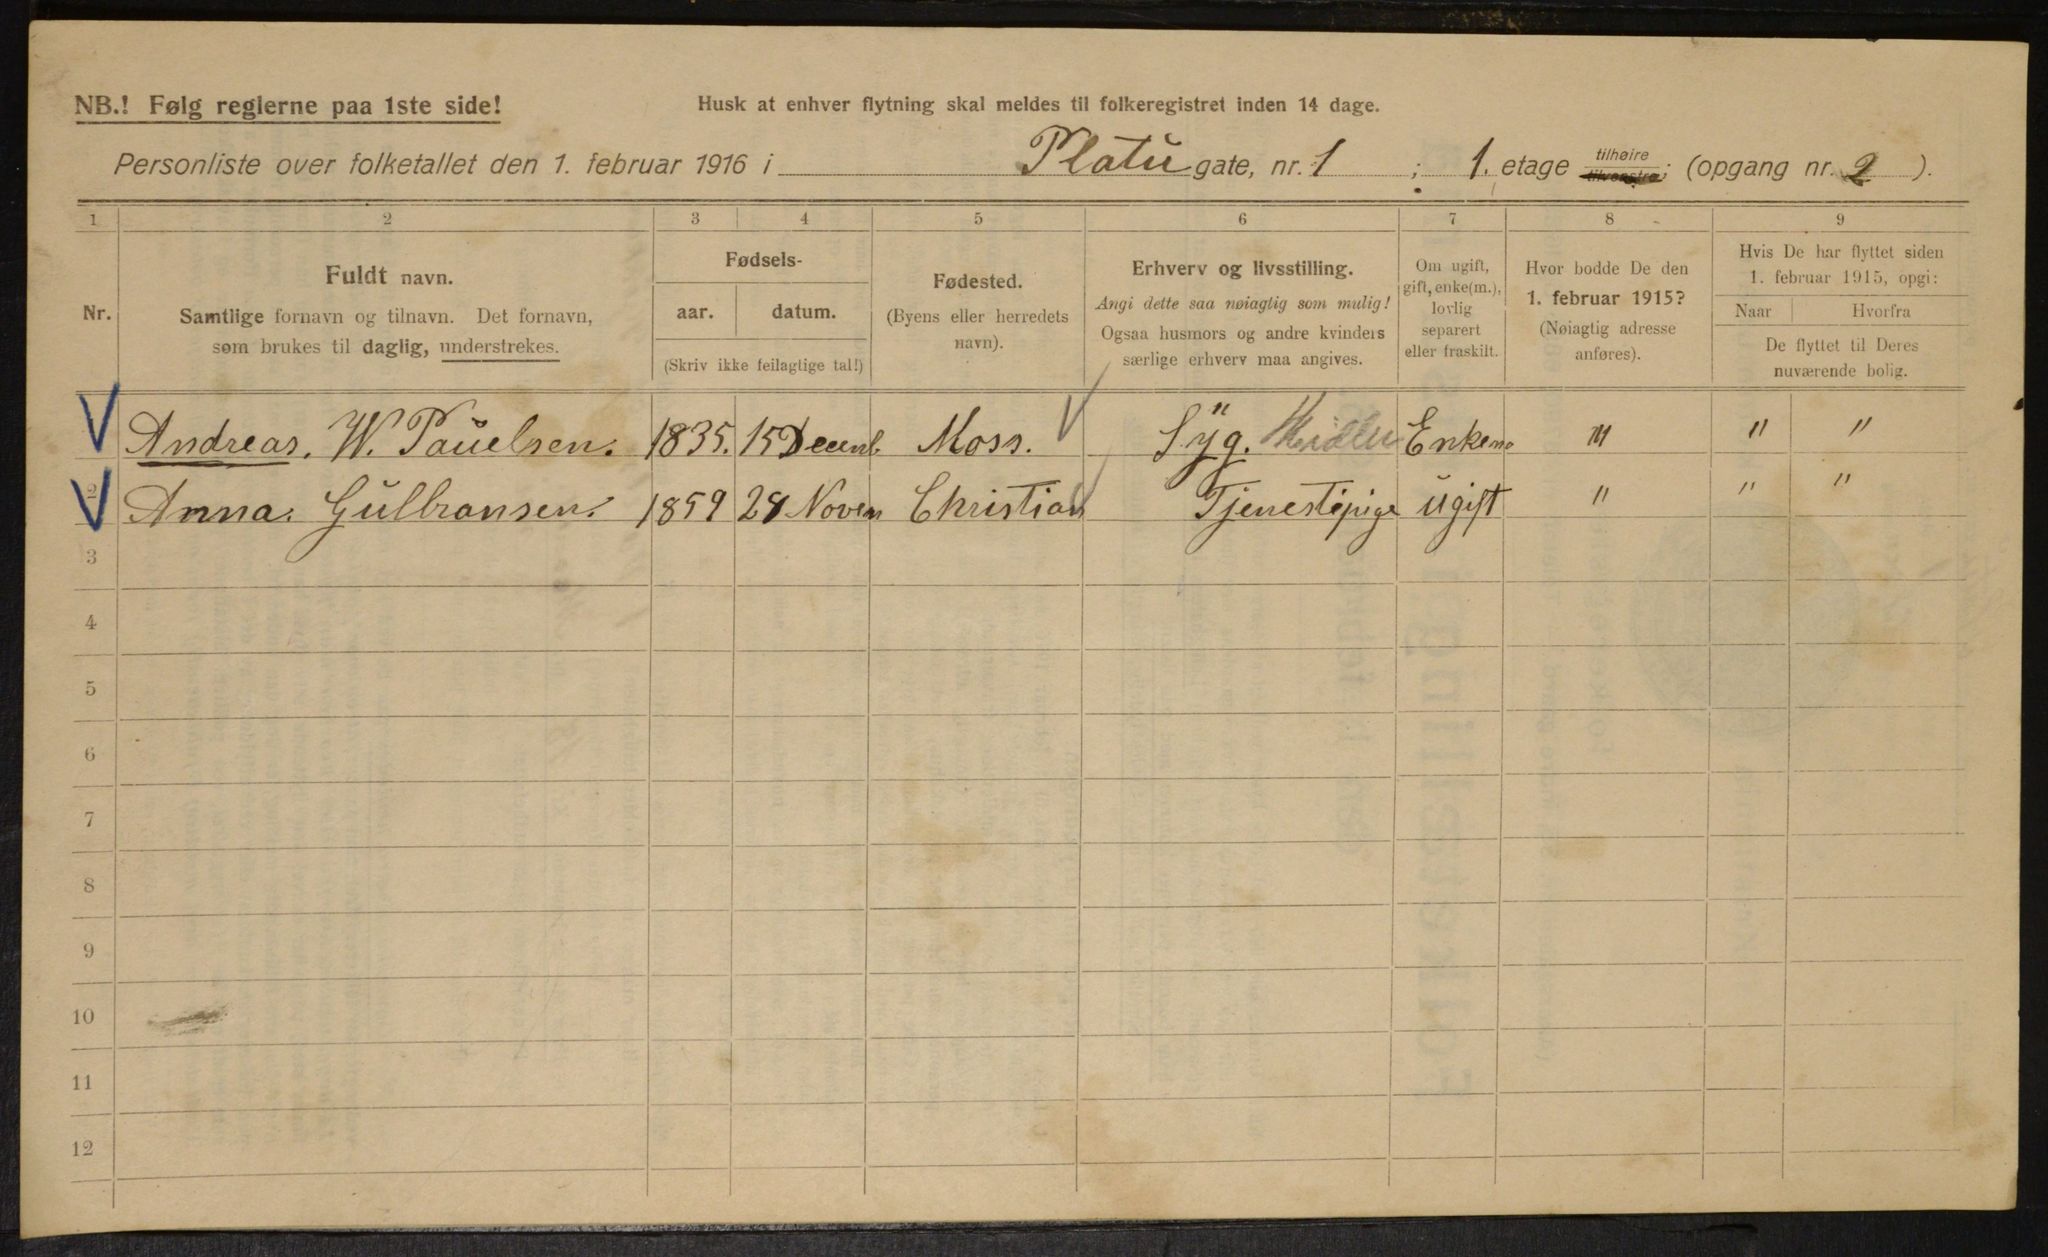 NB.! Følg reglerne paa 1ste side!
Husk at enhver flytning skal meldes til folkeregistret inden 14 dage.
Personliste over folketallet den 1. februar 1916 i Platu gate, nr. 1 ; 1. etage tilhøire tilvenstre; (opgang nr. 2 ).
1 2 3 4 5 6 7 8 9
Nr.
Fuldt navn.
Samtlige fornavn og tilnavn. Det fornavn,
som brukes til daglig, understrekes.
Fødsels-
aar. datum.
(Skriv ikke feilagtige tal!)
Fødested.
(Byens eller herredets
navn).
Erhverv og livsstilling.
Angi dette saa nøiagtig som mulig!
Ogsaa husmors og andre kvinders
særlige erhverv maa angives.
Om ugift,
gift, enke(m.),
lovlig
separert
eller fraskilt.
Hvor bodde De den
1. februar 1915?
(Nøiagtig adresse
anføres).
Hvis De har flyttet siden
1. februar 1915, opgi:
Naar Hvorfra
De flyttet til Deres
nuværende bolig.
Andreas. W. Pauelsen. 1835. 15 Decemb Moss. Syg. Enkem " " "
2 Anna. Gulbransen. 1859 28 Novem Christian Tjenestepige ugift " " "
3
4
5
6
7
8
9
10
11
12